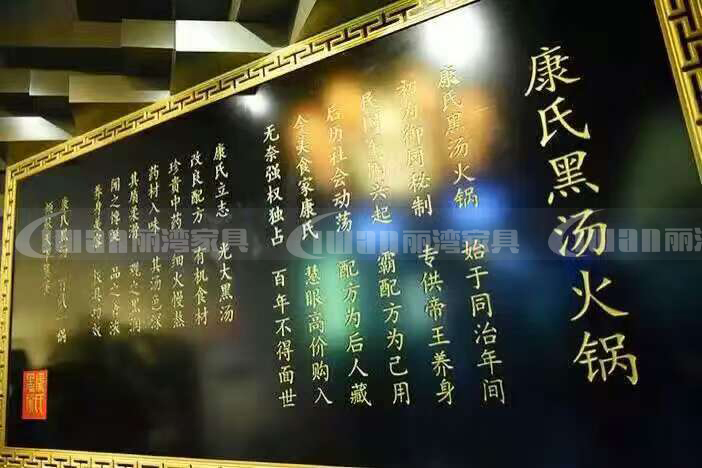 康氏黑汤火锅
康氏黑汤火锅 始于同治年间
初为御厨秘制 专供帝王养身
民间 兴起 霸配方为己用
后历社会动荡 配方为后人藏
今美食家康氏 慧眼高价购入
无奈强权独占 百年不得面世
康氏立志 光大黑汤
改良配方 有机食材
珍贵中药 细火慢熬
药材入味 其汤色深
其质柔滑 观之黑润
闻之馋涎 品之
康氏
丽湾家具
丽湾家具
丽湾家具